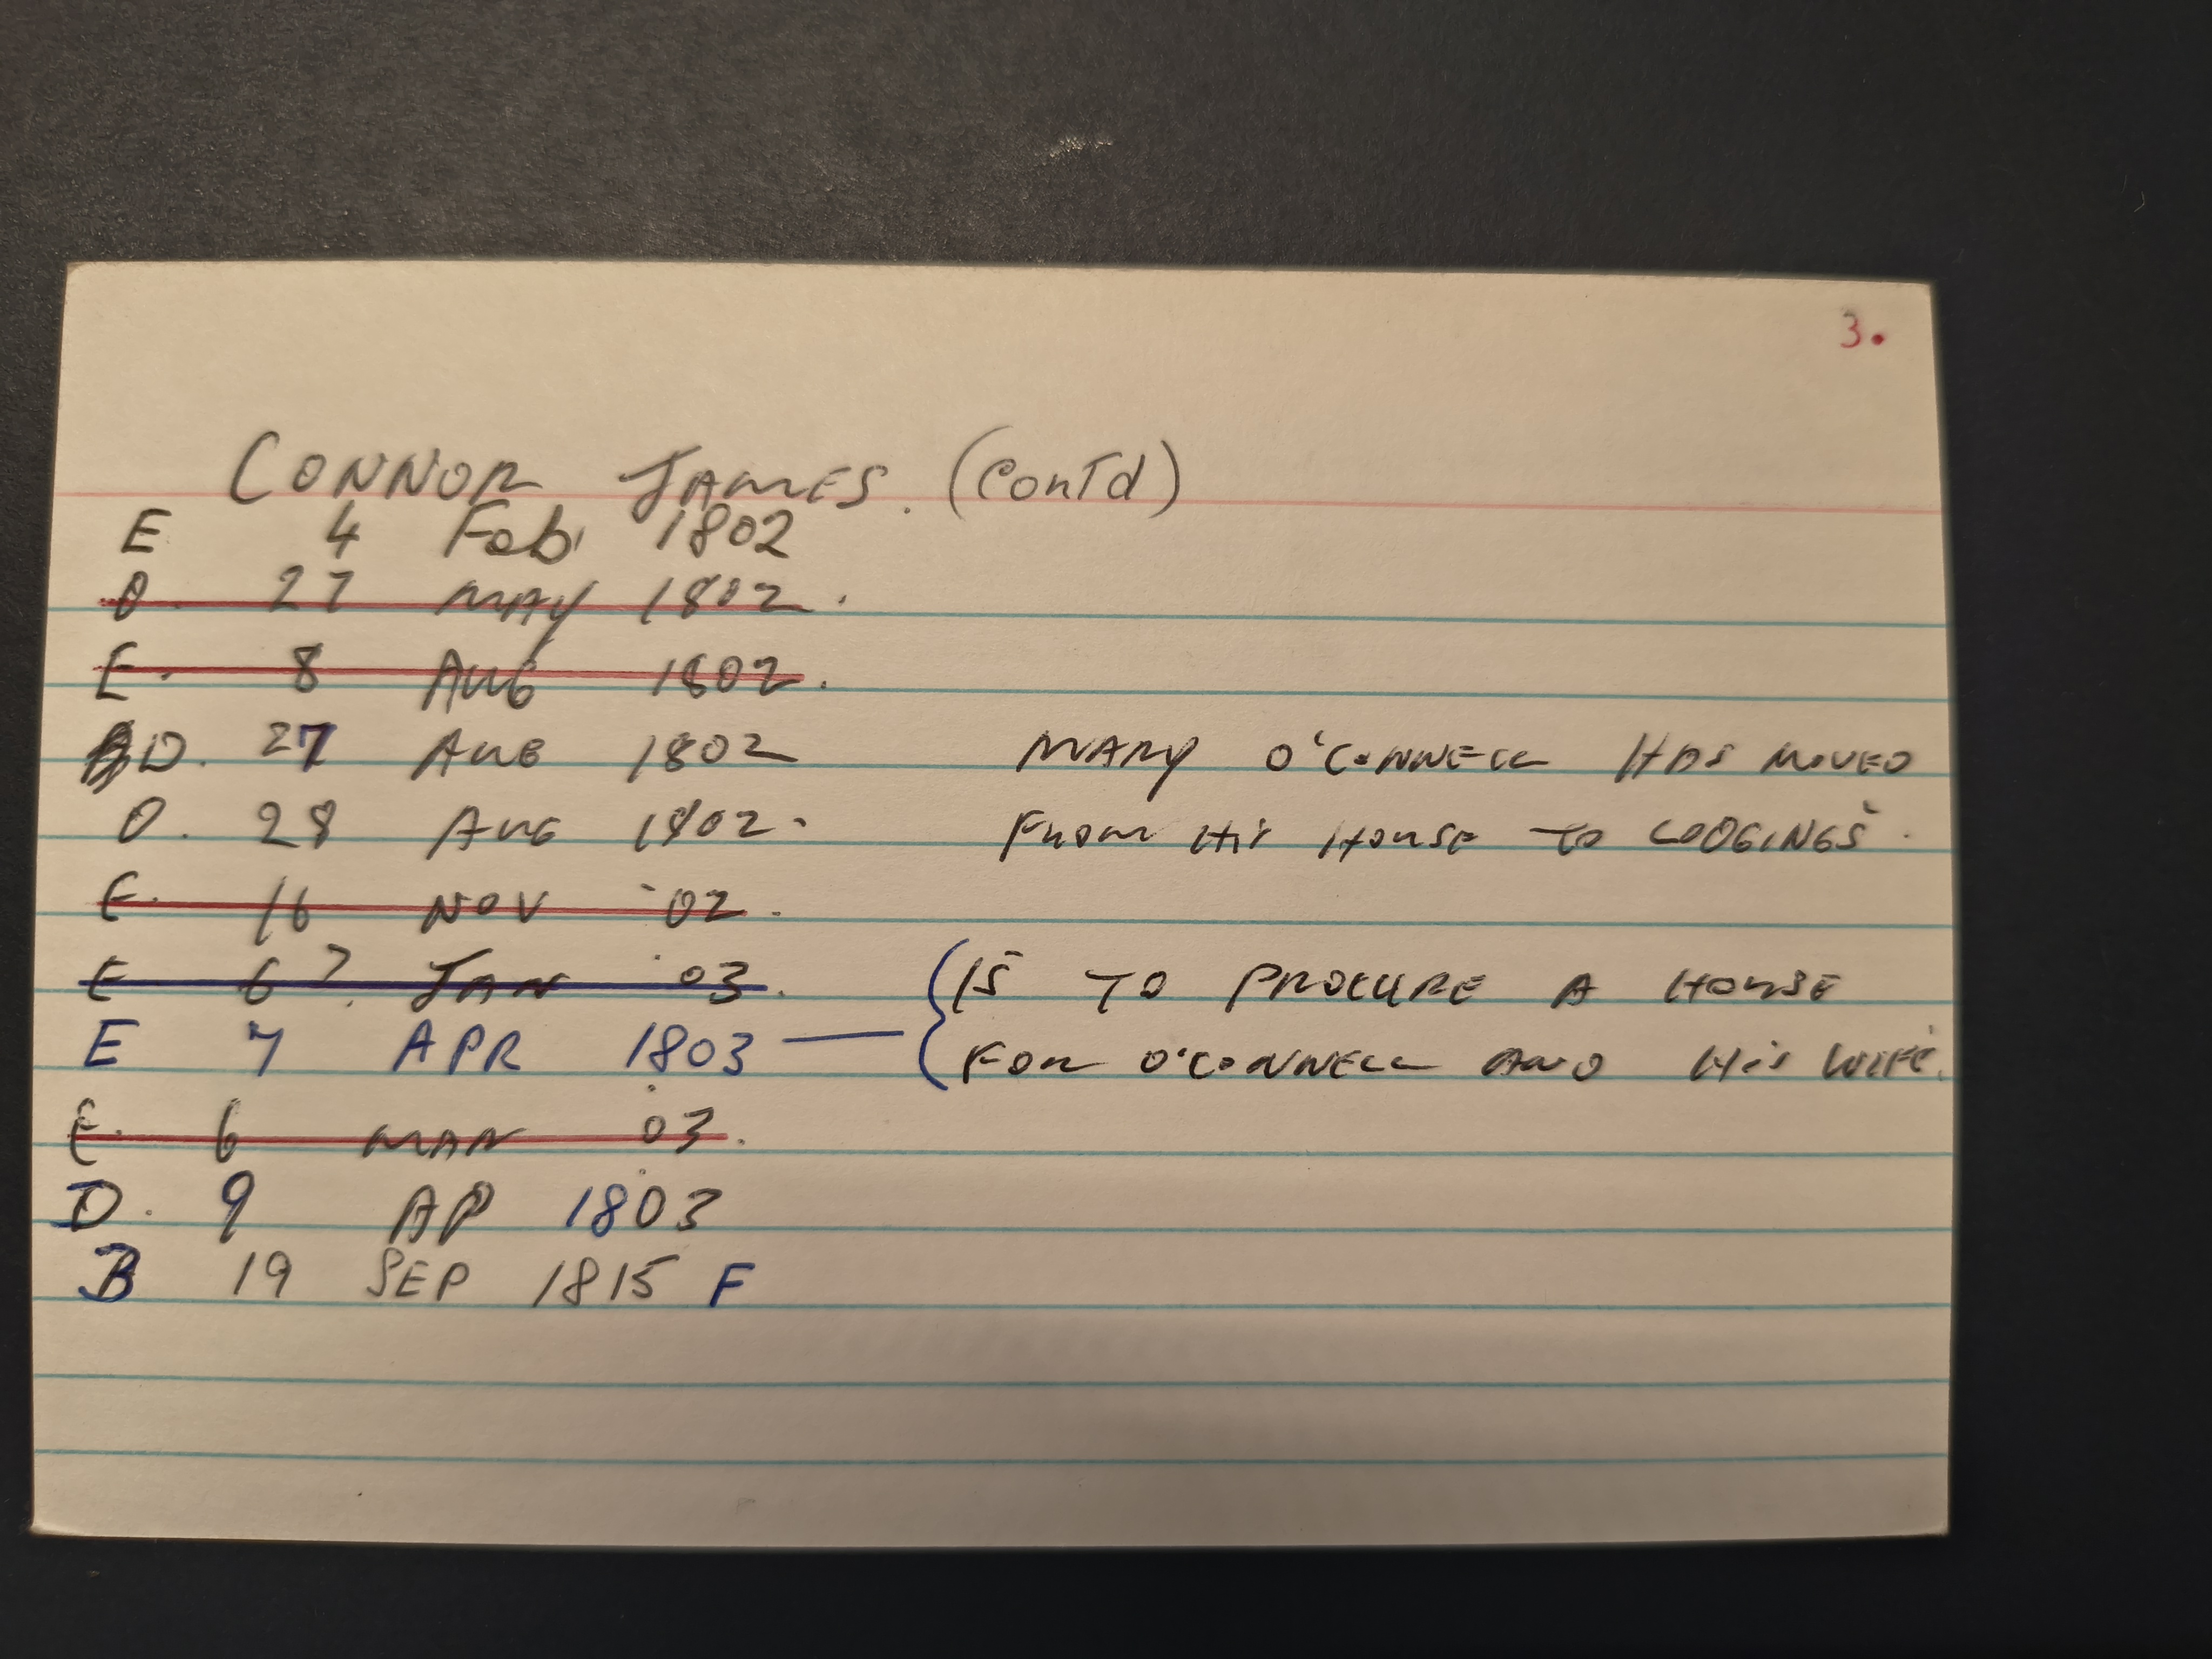 3.
CONNOR JAMES. (Contd)
E 4 Feb 1802
O. 27 MAY 1802.
E. 8 AUG 1802.
D. 27 AUG 1802 MARY O'CONNELL HAS MOVED
O. 28 AUG 1802. FROM HIS HOUSE TO LODGINGS.
E. 16 NOV '02.
E 6?. JAN '03. IS TO PROCURE A HOUSE
E 7 APR 1803 — FOR O'CONNELL AND HIS WIFE.
E. 6 MAR '03.
D. 9 AP 1803
B 19 SEP 1815 F